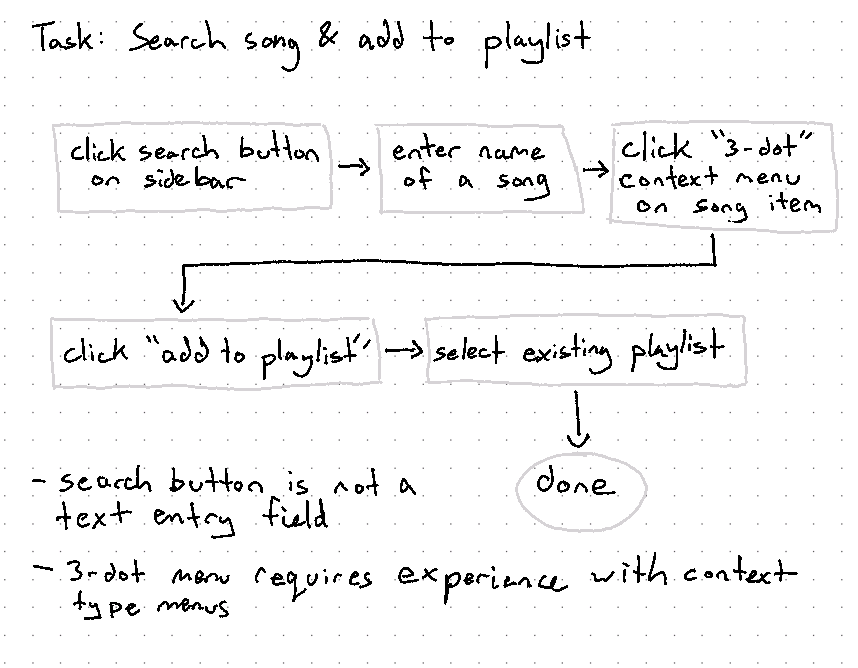 Task: Search song & add to playlist
click search button
on sidebar
enter name
of a song
click "3-dot"
context menu
on song item
click "add to playlist"
select existing playlist
done
- search button is not a
text entry field
- 3-dot menu requires experiance with context
type menus